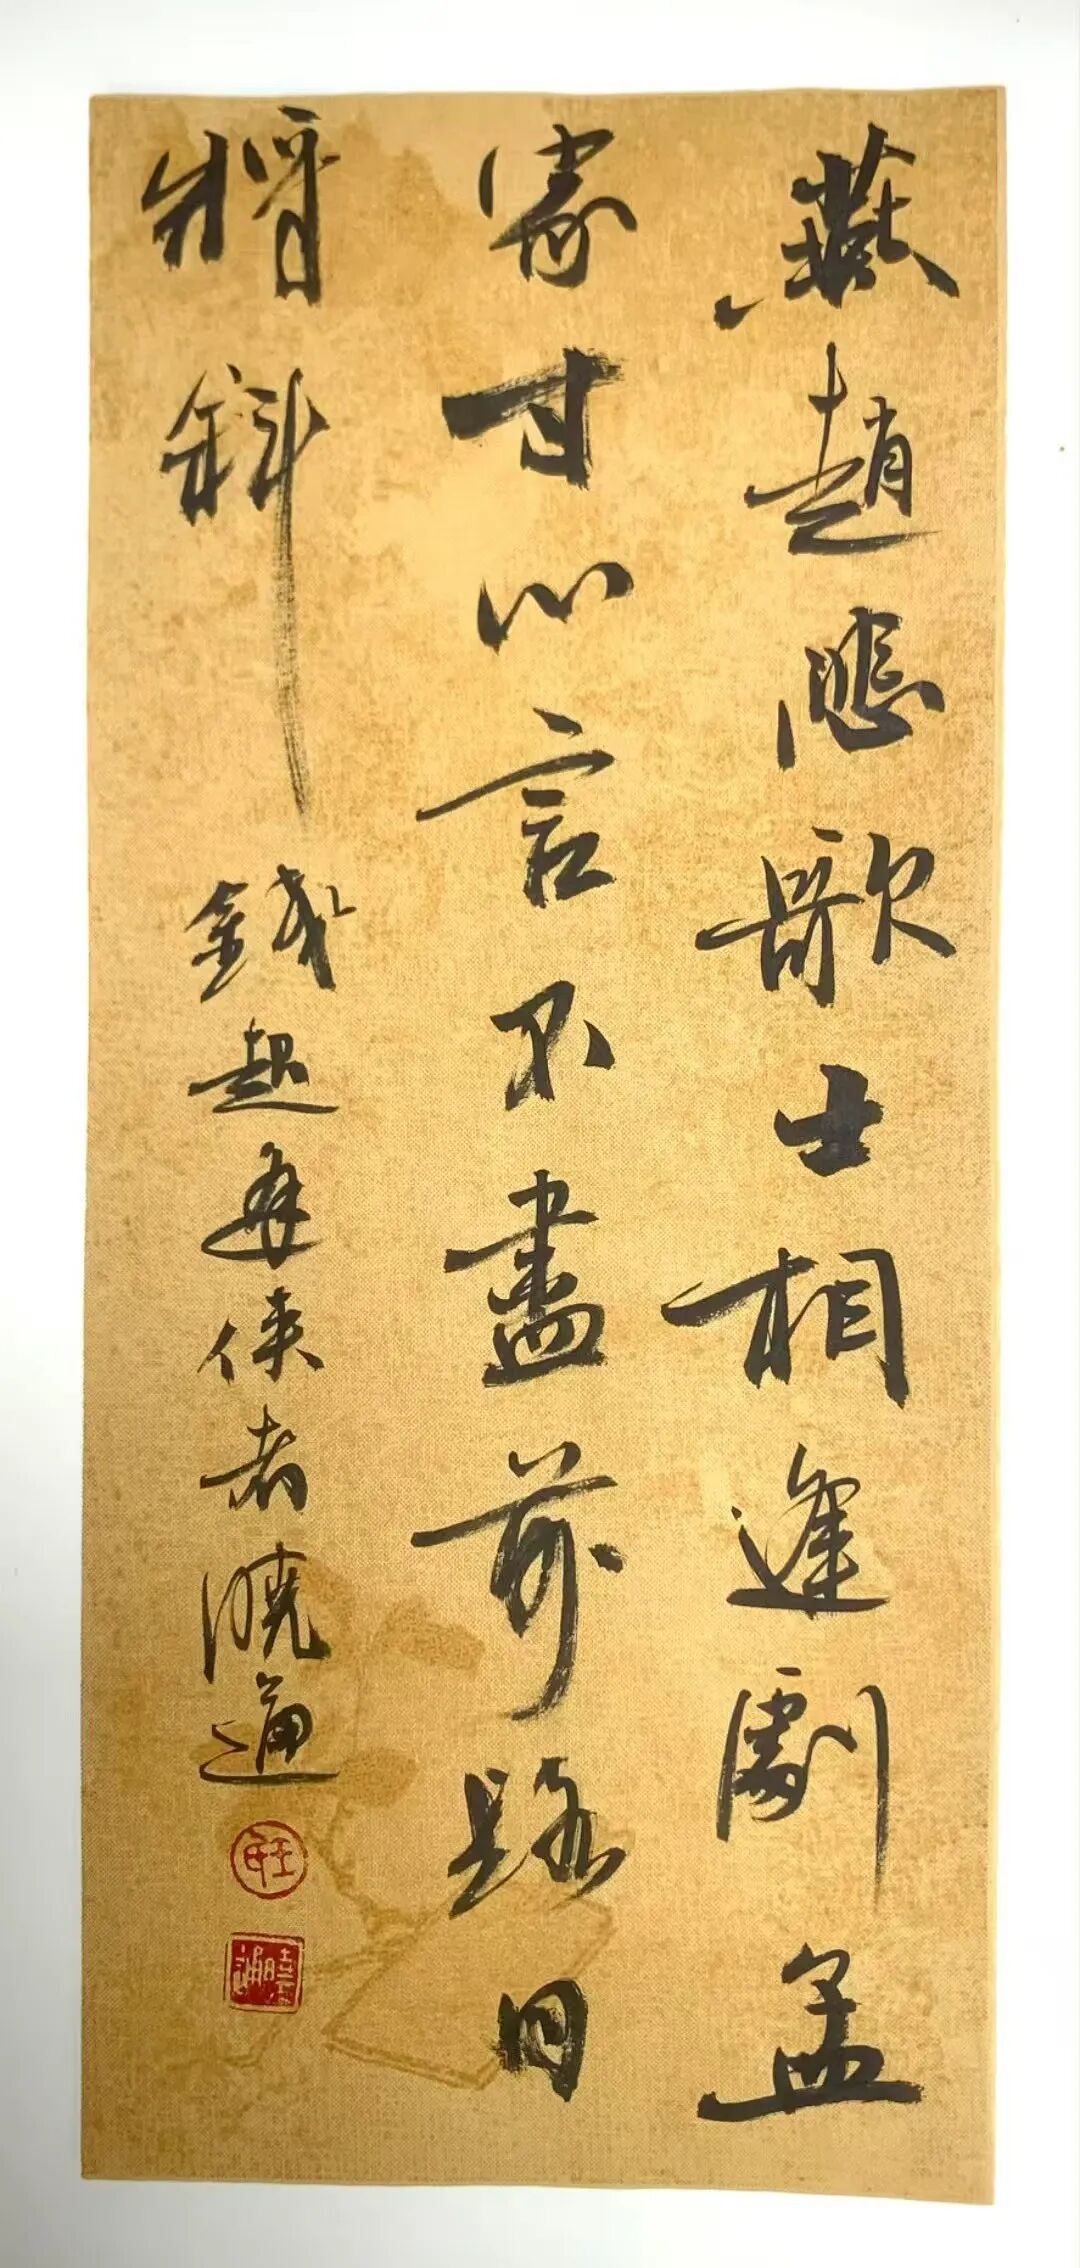 燕趙悲歌士相逢劇孟
家寸心言不盡前路日
將斜 錢起逢俠者曉通
曉通